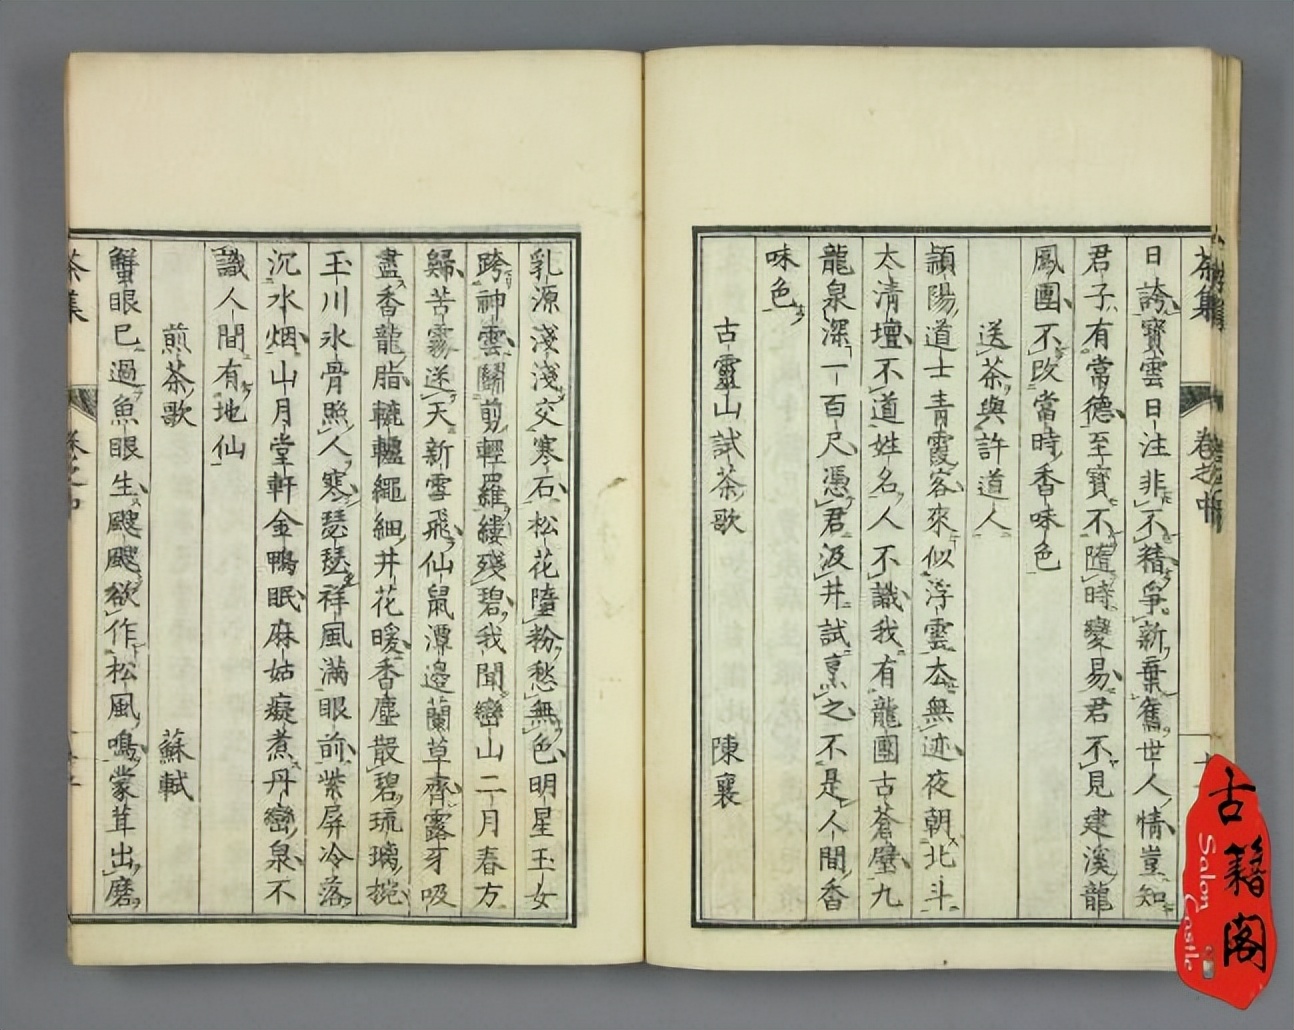 茶集 卷之中
日誇寳雲日注非不精爭新棄舊世人情豈知
君子有常德至寳不隨時變易君不見建溪龍
鳳團不改當時香味色
送茶與許道人
頴陽道士青霞客來似浮雲去無迹夜朝北斗
太清壇不道姓名人不識我有龍團古蒼璧九
龍泉深一百尺憑君汲井試烹之不是人間香
味色
古靈山試茶歌 陳襄
乳源淺淺交寒石松花墮粉愁無色明星玉女
跨神雲鬭剪輕羅縷殘碧我聞巒山二月春方
歸苦霧迷天新雪飛仙鼠潭邊蘭草齊露牙吸
盡香龍脂轆轤繩細井花暖香塵散碧琉璃椀
玉川氷骨照人寒瑟瑟祥風滿眼前紫屏冷落
沉水烟山月堂軒金鴨眠麻姑癡煮丹巒泉不
識人間有地仙
煎茶歌 蘇軾
蟹眼已過魚眼生颼颼欲作松風鳴蒙茸出磨
茶集 卷之中
古籍阁
Salon Castle